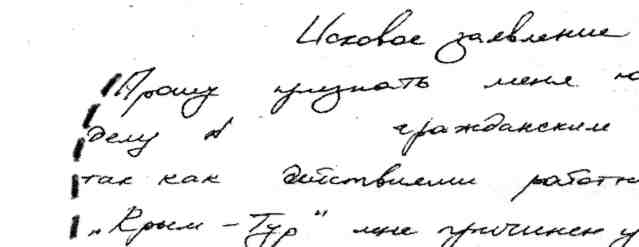 Исковое заявление
Прошу признать меня
делу № гражданским
так как действиями
„Крым-Тур" мне причинен